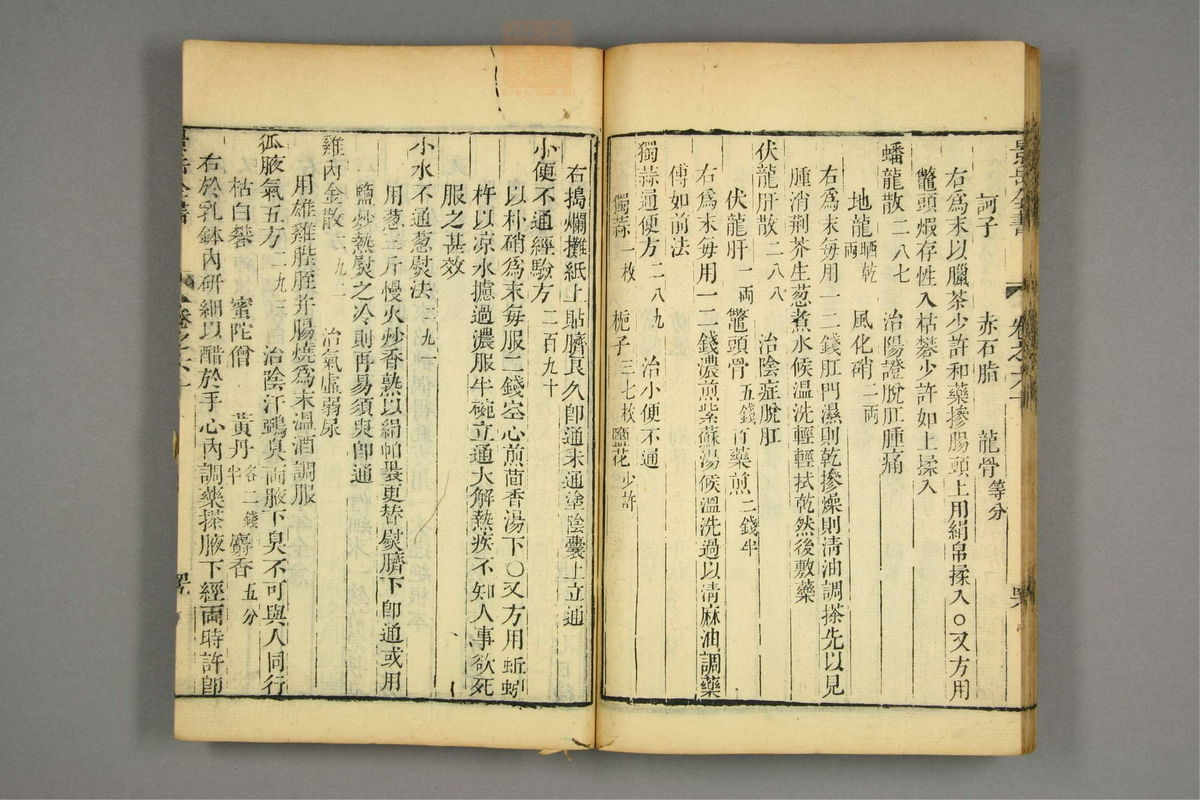 景岳全書 卷之六十
訶子 赤石脂 龍骨等分
右爲末以臘茶少許和藥摻腸頭上用絹帛揉入○又方用
鼈頭煆存性入枯礬少許如上揉入
蟠龍散二八七 治陽證脫肛腫痛
地龍晒乾一兩 風化硝二兩
右爲末每用一二錢肛門濕則乾摻燥則清油調搽先以見
腫消荆芥生葱煮水候温洗輕輕拭乾然後敷藥
伏龍肝散二八八 治陰症脫肛
伏龍肝一兩 鼈頭骨五錢 百藥煎二錢半
右爲末每用一二錢濃煎紫蘇湯候温洗過以清麻油調藥
傅如前法
獨蒜通便方二八九 治小便不通
獨蒜一枚 梔子三七枚 鹽花少許
右搗爛攤紙上貼臍良久卽通未通塗陰囊上立通
小便不通經驗方二百九十
以朴硝爲末每服二錢空心煎茴香湯下○又方用蚯蚓
杵以凉水攄過濃服半碗立通大解熱疾不知人事欲死
服之甚效
小水不通葱熨法二九一
用葱三斤慢火炒香熟以絹帕褁更替熨臍下卽通或用
鹽炒熱熨之冷則再易須臾卽通
雞內金散二九二 治氣虛弱尿
用雄雞䏶胵并腸燒爲末温酒調服
狐腋氣五方二九三 治陰汗鵶臭兩腋下臭不可與人同行
枯白礬 蜜陀僧 黃丹各二錢半 麝香五分
右於乳鉢內研細以醋於手心內調藥搽腋下經兩時許卽
景岳全書 卷之六十